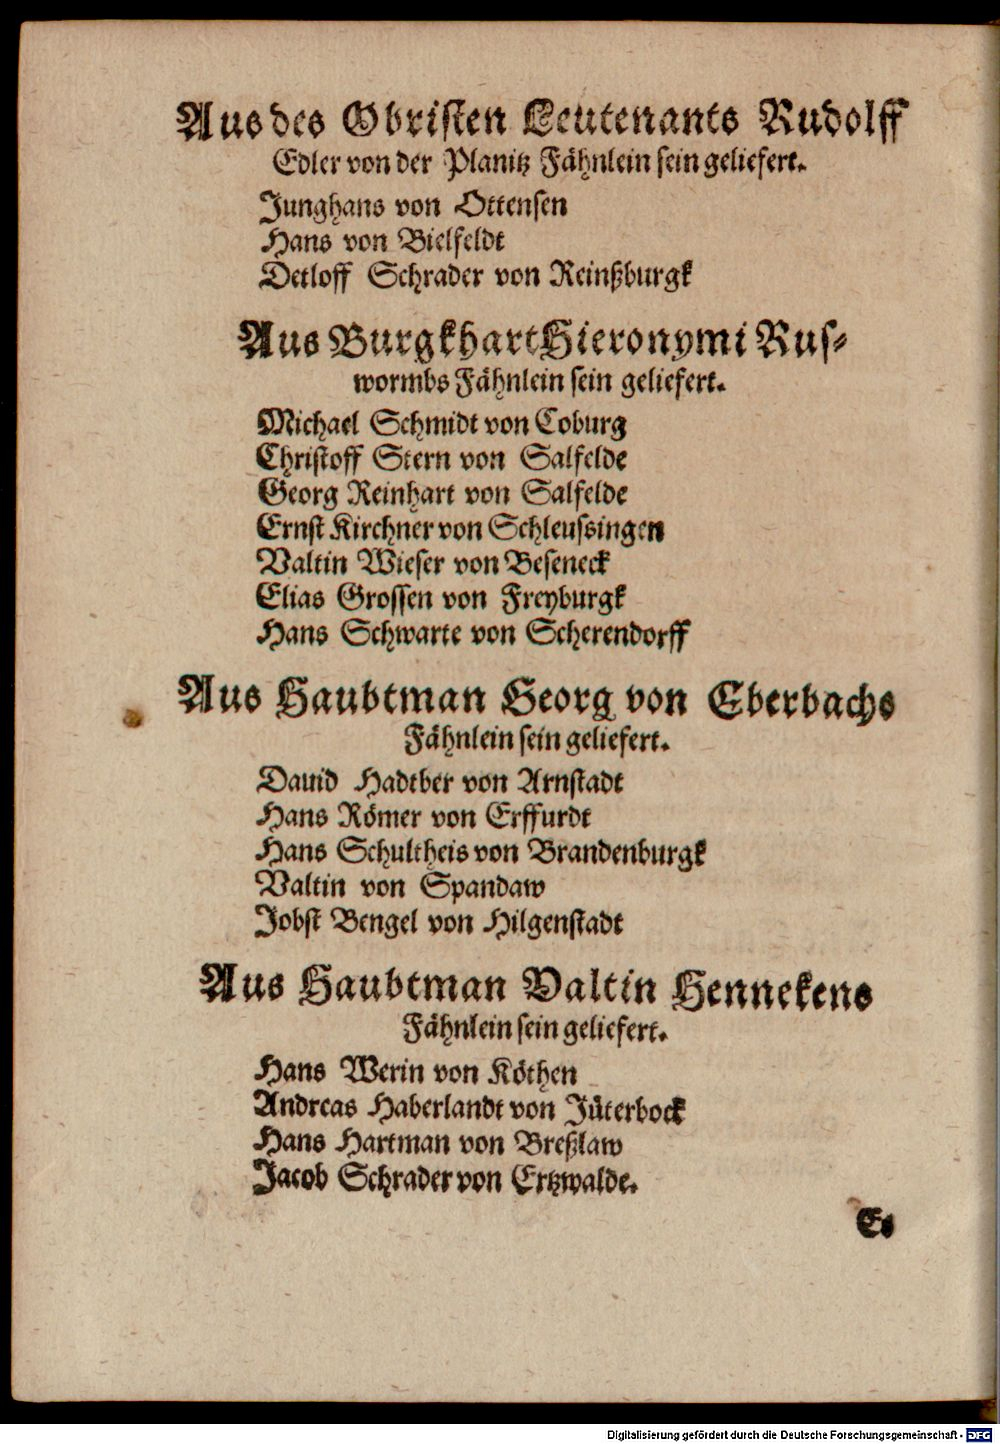 Aus des Obristen Leutenants Rudolff
Edler von der Planitz Fähnlein sein geliefert.
Junghans von Ottensen
Hans von Bielfeldt
Detloff Schrader von Reinßburgk
Aus Burgkhart Hieronymi Rus-
wormbs Fähnlein sein geliefert.
Michael Schmidt von Coburg
Christoff Stern von Salfelde
Georg Reinhart von Salfelde
Ernst Kirchner von Schleussingen
Valtin Wieser von Beseneck
Elias Grossen von Freyburgk
Hans Schwarte von Scherendorff
Aus Haubtman Georg von Eberbachs
Fähnlein sein geliefert.
Dauid Hadtber von Arnstadt
Hans Römer von Erffurdt
Hans Schultheis von Brandenburgk
Valtin von Spandaw
Jobst Bengel von Hilgenstadt
Aus Haubtman Valtin Hennekens
Fähnlein sein geliefert.
Hans Werin von Köthen
Andreas Haberlandt von Jüterbock
Hans Hartman von Breßlaw
Jacob Schrader von Ertzwalde.
Es
Digitalisierung gefördert durch die Deutsche Forschungsgemeinschaft - DFG